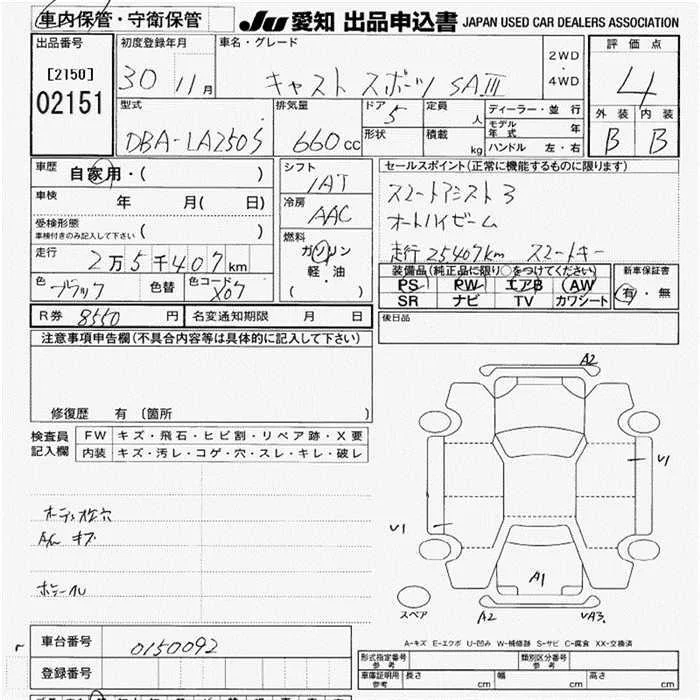 車内保管・守衛保管
JU 愛知 出品申込書 JAPAN USED CAR DEALERS ASSOCIATION
出品番号
[2150]
02151
初度登録年月
30 11月
車名・グレード
キャスト スポーツ SAⅢ
2WD
4WD
評価点
4
外装 内装
B B
型式
DBA-LA250S
排気量
660cc
ドア 5
形状
定員 人
積載 kg
ディーラー・並行
モデル年式 年
ハンドル 左・右
車歴 自家用・( )
車検 年 月( 日)
受検形態
車検付きのみ記入して下さい ( )
走行 2万5千407km
色 ブラック 色替 色コード X07
シフト
IAT
冷房
AAC
燃料
ガソリン
軽・油
( )
セールスポイント(正常に機能するものに限ります)
スマートアシスト3
オートハイビーム
走行 25407km スマートキー
装備品(純正品に限り○をつけてください)
PS PW エアB AW
SR ナビ TV カワシート
新車保証書
有・無
R券 8550円 名変通知期限 月 日
後日品
注意事項申告欄(不具合内容等は具体的に記入して下さい)
修復歴 有 〔箇所 〕
検査員記入欄
FW キズ・飛石・ヒビ割・リペア跡・X要
内装 キズ・汚レ・コゲ・穴・スレ・キレ・破レ
A2
V1
V1
A1
スペア
A2
VA3.
A-キズ E-エクボ U-凹み W-補修跡 S-サビ C-腐食 XX-交換済
車台番号 0150092
登録番号
型式指定番号 参考
類別区分番号 参考
車庫証明用 参考 長さ cm 幅 cm 高さ cm